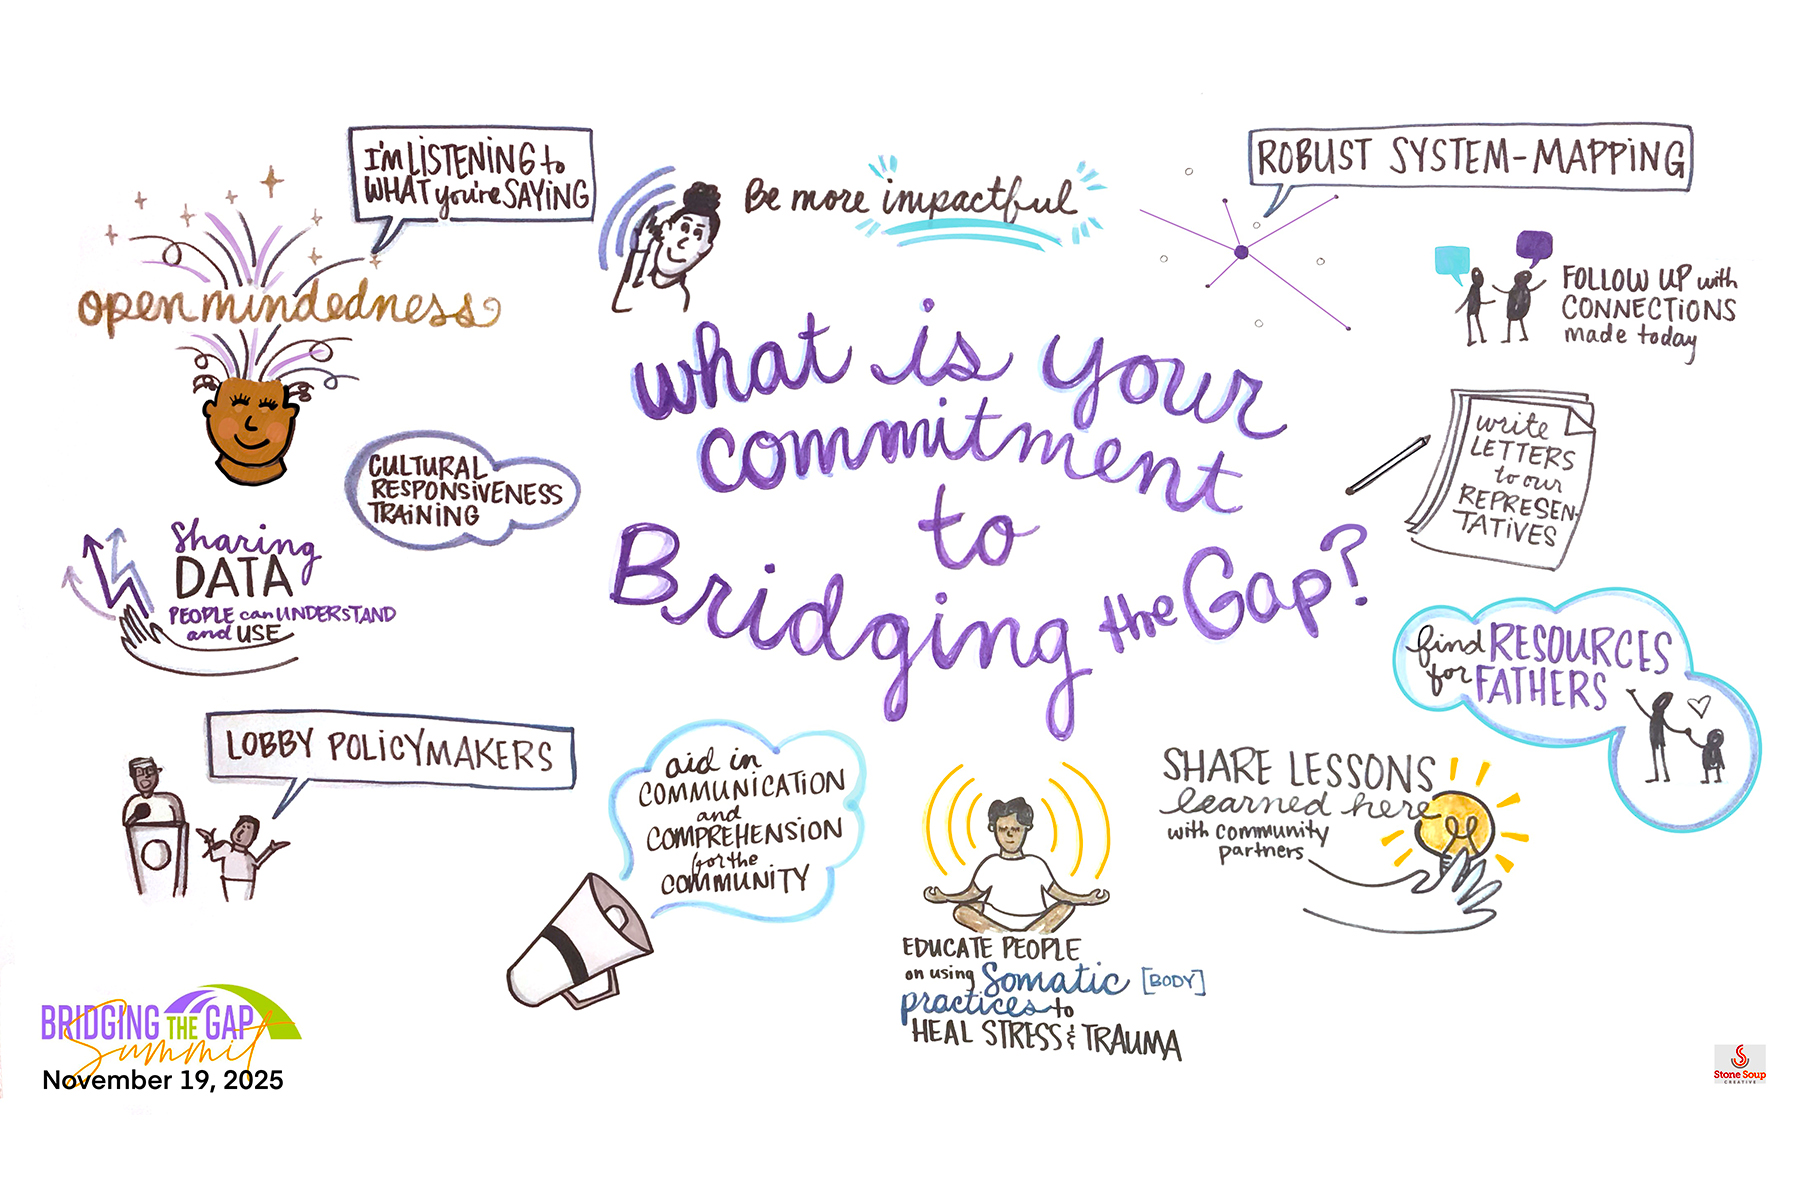 I'M LISTENING to
WHAT you're SAYING
open mindedness
Be more impactful
ROBUST SYSTEM-MAPPING
FOLLOW UP with
CONNECTIONS
made today
what is your
commitment
to
Bridging the Gap?
CULTURAL
RESPONSIVENESS
TRAINING
write
LETTERS
to our
REPRESEN-
TATIVES
Sharing
DATA
PEOPLE can UNDERSTAND
and USE
find RESOURCES
for FATHERS
LOBBY POLICYMAKERS
aid in
COMMUNICATION
and
COMPREHENSION
for the
COMMUNITY
SHARE LESSONS
learned here
with community
partners
EDUCATE PEOPLE
on using Somatic [BODY]
practices to
HEAL STRESS & TRAUMA
BRIDGING THE GAP
Summit
November 19, 2025
Stone Soup
CREATIVE